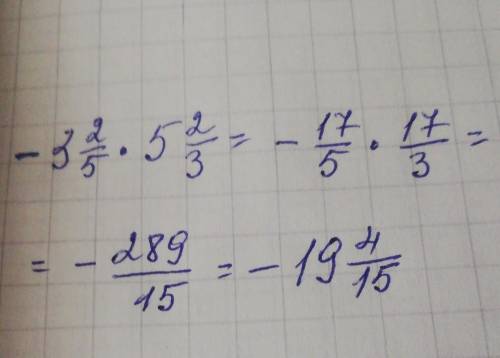 - 3 2/5 · 5 2/3 = - 17/5 · 17/3 =
= - 289/15 = - 19 4/15